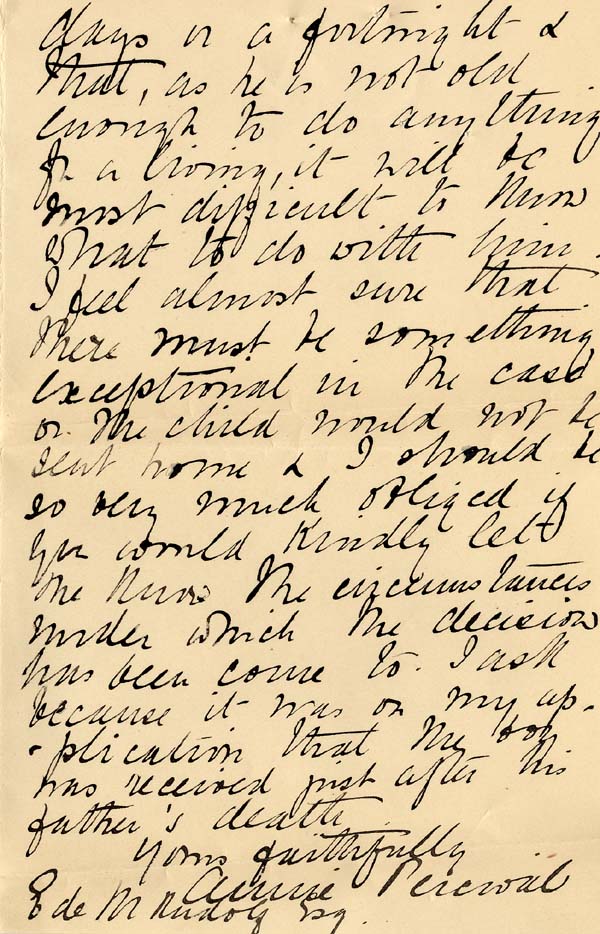 days or a fortnight &
that, as he is not old
enough to do anything
for a living, it will be
most difficult to know
what to do with him.
I feel almost sure that
there must be something
exceptional in the case
or the child would not be
sent home & I should be
so very much obliged if
you would kindly let
me know the circumstances
under which the decision
has been come to. I ask
because it was on my ap-
-plication that the boy
was received just after his
father's death.
Yours faithfully
Annie Percival
E de M Rudolf Esq.